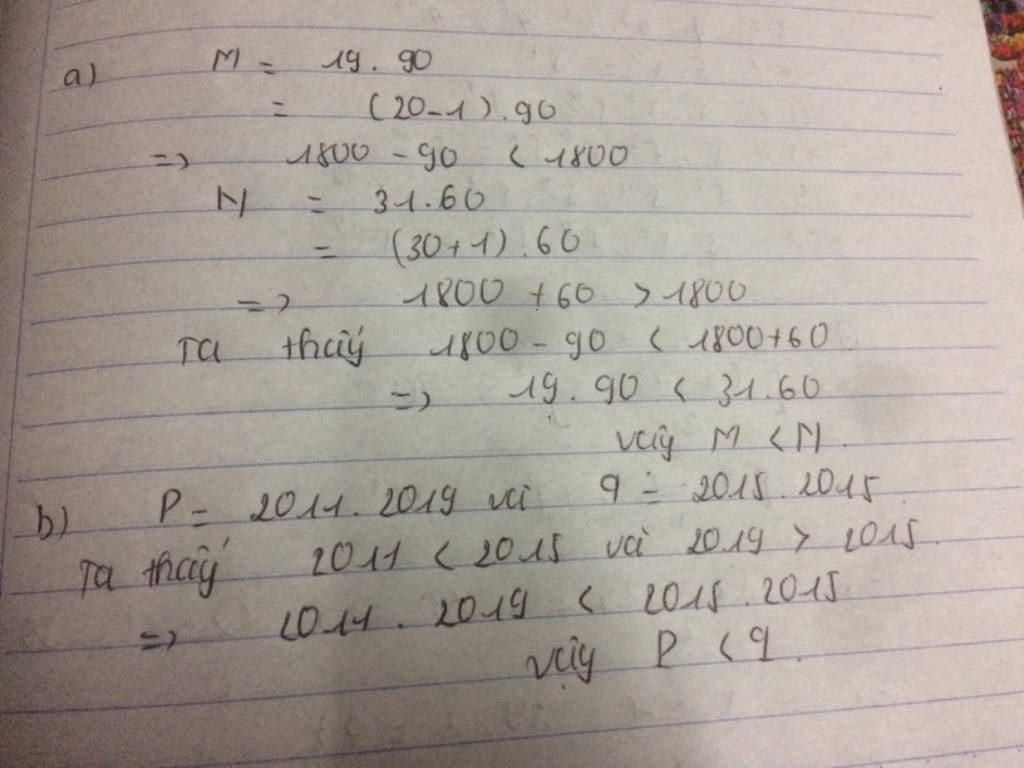 a) M = 19.90
= (20-1).90
=> 1800 - 90 < 1800
N = 31.60
= (30+1).60
=> 1800 + 60 > 1800
Ta thấy 1800 - 90 < 1800+60
=> 19.90 < 31.60
vậy M < N.
b) P = 2011.2019 và q = 2015.2015
Ta thấy 2011 < 2015 và 2019 > 2015.
=> 2011.2019 < 2015.2015
vậy P < q.